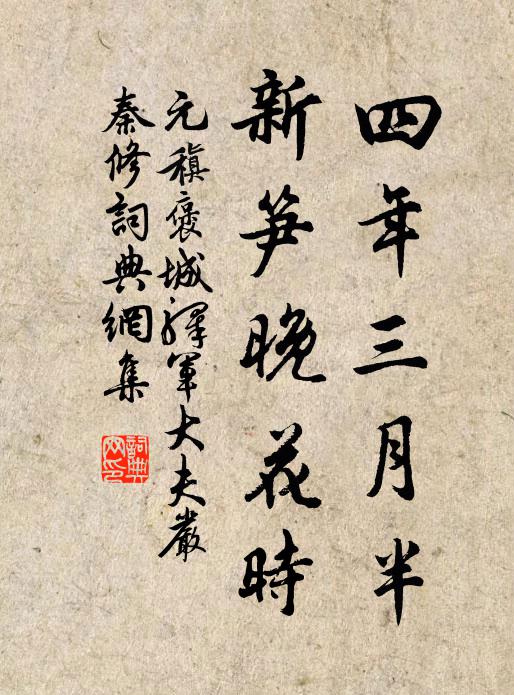 四年三月半
新笋晚花時
元稹褒城驛軍大夫嚴
秦修詞典網集
詞典網印